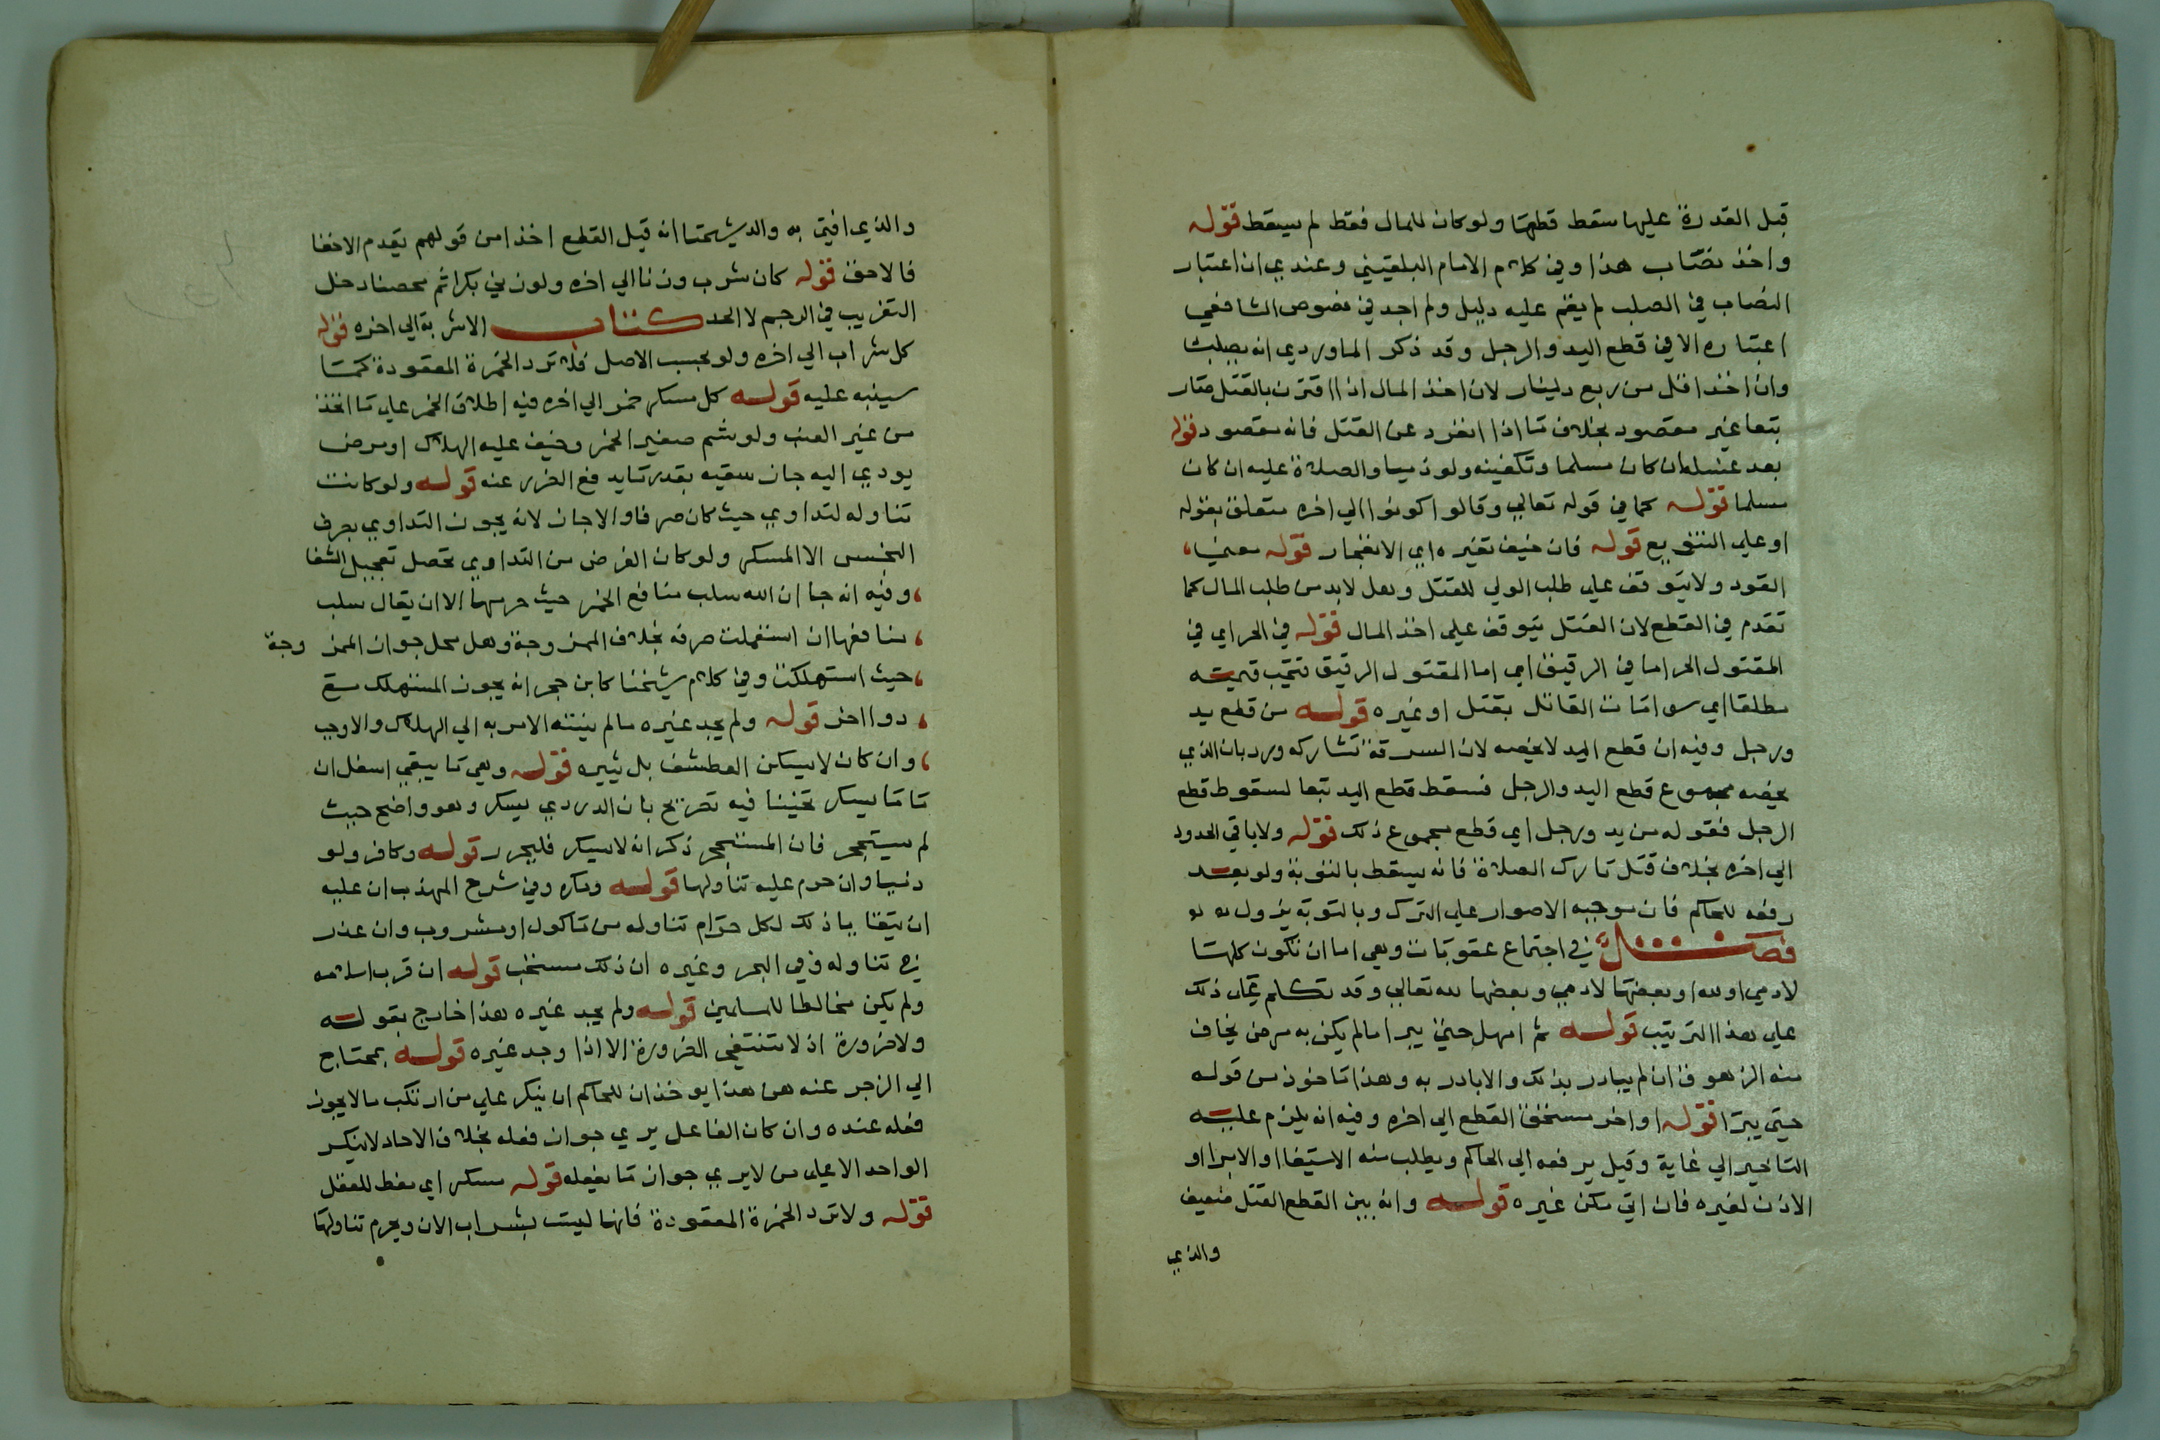 قبل القدرة عليها سقط قطعها ولو كان للمال فقط لم يسقط قوله
واخذ نصاب هذا وفي كلام الامام البلقيني وعندي ان اعتبار
النصاب في الصلب لم يقم عليه دليل ولم اجد في نصوص الشافعي
اعتباره الا في قطع اليد والرجل وقد ذكر الماوردي انه يصلب
وان اخذ اقل من ربع دينار لان اخذ المال اذا اقترن بالقتل صار
تبعا غير مقصود بخلاف ما اذا انفرد عن القتل فانه مقصود قوله
بعد غسله ان كان مسلما وتكفينه ولو ذميا والصلاة عليه ان كان
مسلما قوله كما في قوله تعالي وقالوا كونوا الي اخره متعلق بقوله
او علي التنويع قوله فان خيف تغيره اي الانفجار قوله معني
القود ولا يتوقف علي طلب الولي للقتل وهل لابد من طلب المال كما
تقدم في القطع لان القتل يتوقف علي اخذ المال قوله في الحر اي في
المقتول الحر اما في الرقيق اي اما المقتول الرقيق فتجب قيمته
مطلقا اي سوا مات القاتل بقتل او غيره قوله من قطع يد
ورجل وفيه ان قطع اليد لا يخصه لان السرقة تشاركه ورد بان الذي
يخصه مجموع قطع اليد والرجل فسقط قطع اليد تبعا لسقوط قطع
الرجل فقوله من يد ورجل اي قطع مجموع ذلك قوله ولا باقي الحدود
الي اخره بخلاف قتل تارك الصلاة فانه يسقط بالتوبة ولو بعد
رفعه للحاكم فان موجبه الاصرار علي الترك وبالتوبة يزول
فصل في اجتماع عقوبات وهي اما ان تكون كلها
لادمي او لله او بعضها لادمي وبعضها لله تعالي وقد تكلم علي ذلك
علي هذا الترتيب قوله ثم امهل حتي يبرا ما لم يكن به مرض يخاف
منه الزهوق ان لم يبادر بذلك والا بادر به وهذا ماخوذ من قوله
حتي يبرا قوله او اخر مستحق القطع الي اخره وفيه انه يلزم عليه
التاخير الي غاية وقيل يرفعه الي الحاكم ويطلب منه الاستيفا او الابرا او
الاذن لغيره فان ابي مكن غيره قوله وانه بين القطع القتل ضعيف
والذي
والذي افتي به والد شيخنا انه قبل القطع اخذا من قولهم يقدم الاخف
فالاخف قوله كان شرب وزنا الي اخره ولو زني بكرا ثم محصنا دخل
التغريب في الرجم لا الحد كتاب الاشربة الي اخره قوله
كل شراب الي اخره ولو بحسب الاصل فلا ترد الخمرة المعقودة كما
سينبه عليه قوله كل مسكر خمر الي اخره فيه اطلاق الخمر علي ما اتخذ
من غير العنب ولو شم صغير الخمر وخيف عليه الهلاك او مرض
يودي اليه جاز سقيه بقدر ما يدفع الضرر عنه قوله ولو كانت
تناوله لتداوي حيث كان صرفا والا جاز لانه يجوز التداوي بصرف
النجس الا المسكر ولو كان الغرض من التداوي تحصل تعجيل الشفا
وفيه انه جا ان الله سلب منافع الخمر حيث حرمها الا ان يقال سلب
منافعها ان استعملت صرفه بخلاف الممزوجة وهل محل جواز الممزوجة
حيث استهلكت وفي كلام شيخنا كابن حجر انه يجوز المستهلك مع
دوا اخر قوله ولم يجد غيره ما لم ينته الامر به الي الهلاك والاوجب
وان كان لا يسكن العطش بل يثيره قوله وهي ما يبقي اسفل انا
ما يسكر ثخينا فيه تصريح بان الدردي يسكر وهو واضح حيث
لم يستحجر فان المستحجر ذكر انه لا يسكر فليحرر قوله وكافر ولو
ذميا وان حرم عليه تناولها قوله ومكره وفي شرح المهذب ان عليه
ان يتقايا ذلك لكل حرام تناوله من ماكول او مشروب وان عذر
في تناوله وفي البحر وغيره ان ذلك مستحب قوله ان قرب اسلامه
ولم يكن مخالطا للمسلمين قوله ولم يجد غيره هذا خارج بقوله
ولا ضرورة اذ لا تنتفي الضرورة الا اذا وجد غيره قوله يحتاج
الي الزجر عنه من هذا يوخذ ان للحاكم ان ينكر علي من ارتكب ما لا يجوز
فعله عنده وان كان الفاعل يري جواز فعله بخلاف الاحاد لا ينكر
الواحد الا علي من لا يري جواز ما يفعله قوله مسكر اي مغط للعقل
قوله ولا ترد الخمرة المعقودة فانها ليست بشراب الان ويحرم تناولها